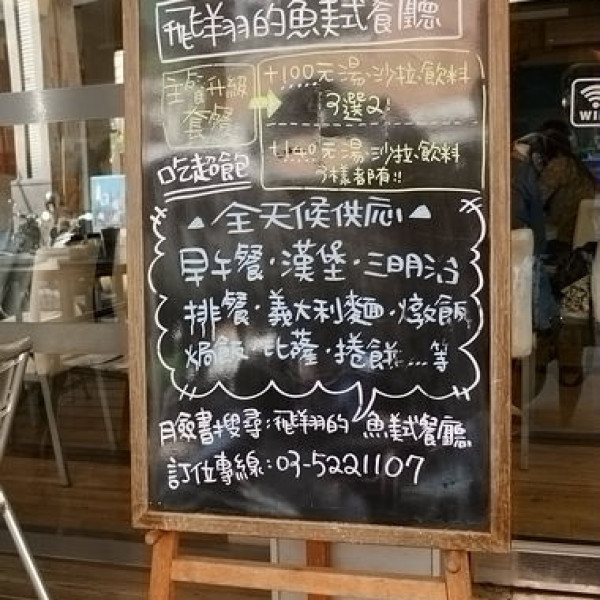 飛翔的魚美式餐廳
主餐升級
套餐
+100元湯·沙拉·飲料
3選2!
+140元湯·沙拉·飲料
3樣都有!!
吃超飽
全天候供應
早午餐·漢堡·三明治
排餐·義大利麵·燉飯
焗飯·比薩·捲餅...等
臉書搜尋:飛翔的魚美式餐廳
訂位專線:03-5221107
WI